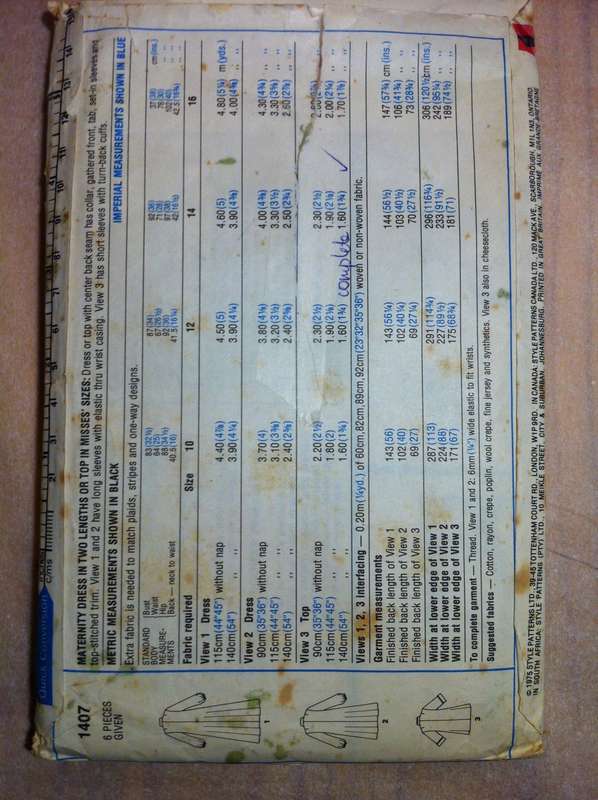 Quick Conversion
cms
1407
6 PIECES
GIVEN
1
2
3
MATERNITY DRESS IN TWO LENGTHS OR TOP IN MISSES' SIZES: Dress or top with center back seam has collar, gathered front, tab, set-in sleeves and
top-stitched trim. View 1 and 2 have long sleeves with elastic thru wrist casing. View 3 has short sleeves with turn-back cuffs.
METRIC MEASUREMENTS SHOWN IN BLACK IMPERIAL MEASUREMENTS SHOWN IN BLUE
Extra fabric is needed to match plaids, stripes and one-way designs.
STANDARD Bust 83(32½) 87(34) 92(36) 97(38) cm(ins.)
BODY Waist 64(25) 67(26½) 71(28) 76(30) ,, ,,
MEASURE- Hip 88(34½) 92(36) 97(38) 102(40) ,, ,,
MENTS Back — neck to waist 40.5(16) 41.5(16¼) 42(16½) 42.5(16¾) ,, ,,
Fabric required Size 10 12 14 16
View 1 Dress
115cm(44"45") without nap 4.40(4⅞) 4.50(5) 4.60(5) 4.80(5¼) m(yds.)
140cm(54") ,, ,, 3.90(4¼) 3.90(4¼) 3.90(4⅜) 4.00(4⅜) ,, ,,
View 2 Dress
90cm(35"36") without nap 3.70(4) 3.80(4⅛) 4.00(4⅜) 4.30(4¾) ,, ,,
115cm(44"45") ,, ,, 3.10(3⅜) 3.20(3½) 3.30(3½) 3.30(3⅝) ,, ,,
140cm(54") ,, ,, 2.40(2⅝) 2.40(2⅝) 2.50(2¾) 2.60(2⅞) ,, ,,
View 3 Top
90cm(35"36") without nap 2.20(2½) 2.30(2½) 2.30(2½) ,, ,,
115cm(44"45") ,, ,, 1.80(2) 1.90(2⅛) 1.90(2⅛) 2.00(2¼) ,, ,,
140cm(54") ,, ,, 1.60(1¾) 1.60(1¾) 1.60(1¾) 1.70(1⅞) ,, ,,
complete ✓
Views 1, 2, 3 Interfacing — 0.20m(¼yd.) of 60cm,82cm,89cm,92cm(23"32"35"36") woven or non-woven fabric.
Garment measurements
Finished back length of View 1 143(56) 143(56¼) 144(56½) 147(57¾) cm(ins.)
Finished back length of View 2 102(40) 102(40¼) 103(40½) 106(41¾) ,, ,,
Finished back length of View 3 69(27) 69(27¼) 70(27½) 73(28¾) ,, ,,
Width at lower edge of View 1 287(113) 291(114¾) 296(116¾) 306(120½) cm(ins.)
Width at lower edge of View 2 224(88) 227(89½) 233(91½) 242(95¼) ,, ,,
Width at lower edge of View 3 171(67) 175(68¾) 181(71) 189(74½) ,, ,,
To complete garment — Thread. View 1 and 2: 6mm(¼") wide elastic to fit wrists.
Suggested fabrics — Cotton, rayon, crepe, poplin, wool crepe, fine jersey and synthetics. View 3 also in cheesecloth.
© 1975 STYLE PATTERNS LTD., 39-45 TOTTENHAM COURT RD., LONDON, W1P 9RD. IN CANADA: STYLE PATTERNS CANADA LTD., 120 MACK AVE., SCARBOROUGH, M1L 1N3, ONTARIO
IN SOUTH AFRICA: STYLE PATTERNS (PTY) LTD., 10 MEIKLE STREET, CITY & SUBURBAN, JOHANNESBURG. PRINTED IN GREAT BRITAIN. IMPRIMÉ AUX GRANDE-BRETAGNE